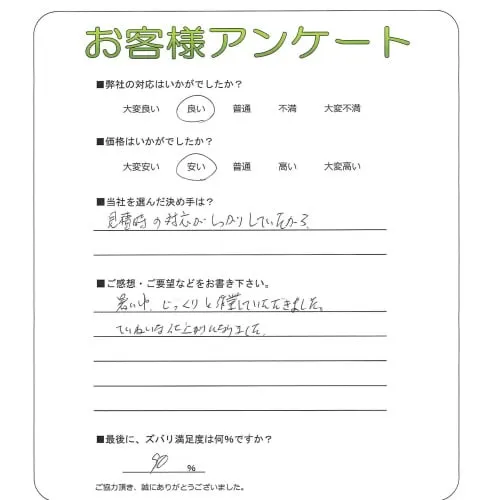 お客様アンケート
■弊社の対応はいかがでしたか？
大変良い 良い 普通 不満 大変不満
■価格はいかがでしたか？
大変安い 安い 普通 高い 大変高い
■当社を選んだ決め手は？
見積時の対応がしっかりしていたから。
■ご感想・ご要望などをお書き下さい。
暑い中、じっくりと作業していただきました。
ていねいな仕上がりになりました。
■最後に、ズバリ満足度は何％ですか？
90 ％
ご協力頂き、誠にありがとうございました。